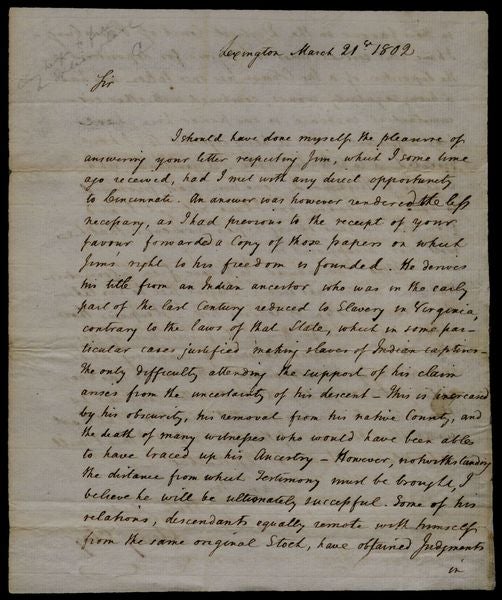 Lexington March 21st 1802
Sir
I should have done myself the pleasure of
answering your letter respecting Jim, which I some time
ago received, had I met with any direct opportunity
to Cincinnati. An answer was however rendered the less
necessary, as I had previous to the receipt of your
favour forwarded a Copy of those papers on which
Jim's right to his freedom is founded. He derives
his title from an Indian ancestor who was in the early
part of the last Century reduced to Slavery in Virginia,
contrary to the laws of that State, which in some par-
ticular cases justified making slaves of Indian captives—
the only difficulty attending the support of his claim
arises from the uncertainty of his descent— this is increased
by his obscurity, his removal from his native County, and
the death of many witnesses who would have been able
to have traced up his Ancestry— However, notwithstanding
the distance from which Testimony must be brought, I
believe he will be ultimately successful. Some of his
relations, descendants equally remote with himself
from the same original Stock, have obtained Judgments
in